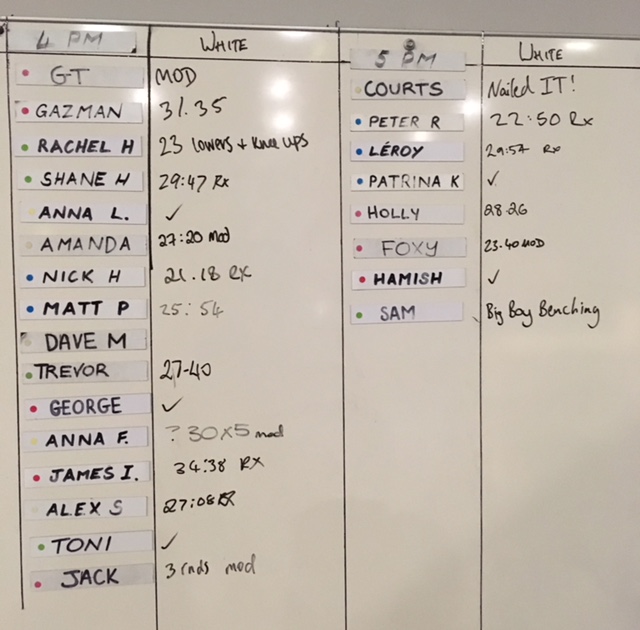 4 PM WHITE
G-T MOD
GAZMAN 31.35
RACHEL H 23 lowers + knee ups
SHANE H 29:47 Rx
ANNA L. ✓
AMANDA 27:20 mod
NICK H 21.18 RX
MATT P 25:54
DAVE M
TREVOR 27-40
GEORGE ✓
ANNA F. ? 30x5 mod
JAMES I. 34:38 RX
ALEX S 27:08 RX
TONI ✓
JACK 3 rnds mod
5 PM WHITE
COURTS Nailed IT!
PETER R 22:50 Rx
LÉROY 29:57 Rx
PATRINA K ✓
HOLLY 28.26
FOXY 23.40 MOD
HAMISH ✓
SAM Big Boy Benching